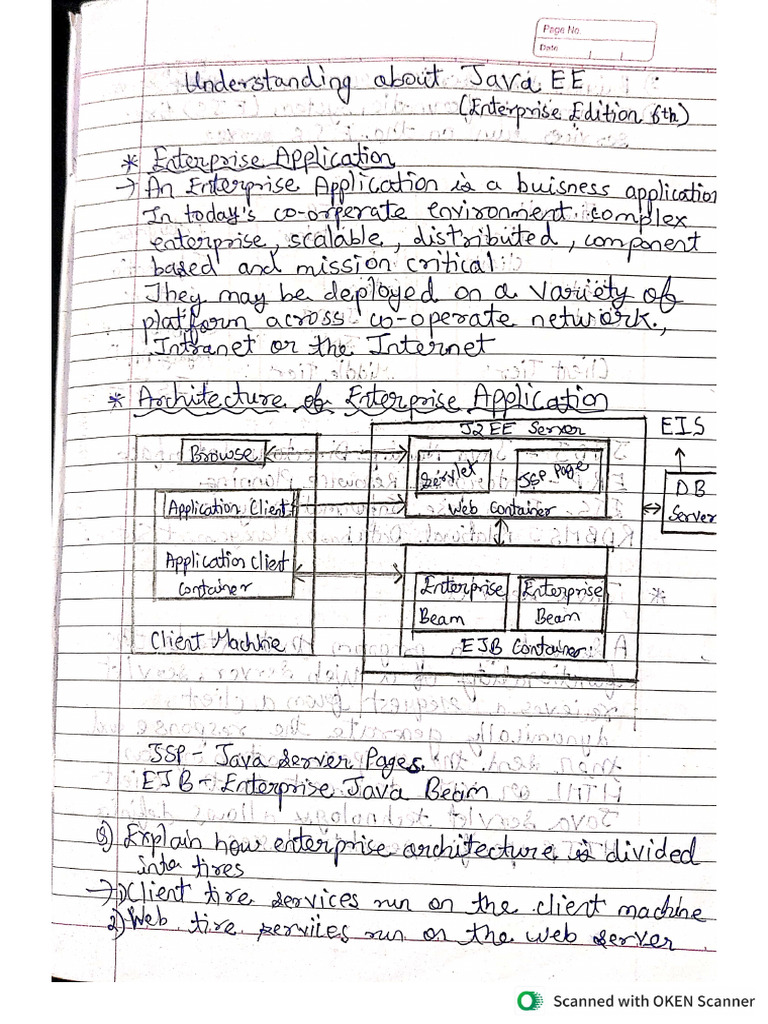 Page No.
Date
Understanding about Java EE
(Enterprise Edition 6th)
* Enterprise Application
→ An Enterprise Application is a buisness application
In today's co-orperate environment complex
enterprise, scalable, distributed, component
based and mission critical
They may be deployed on a variety of
platform across co-operate network.,
Intranet or the Internet
* Architecture of Enterprise Application
J2EE Server
EIS
Browse
Servlet
JSP Page
DB
Server
Application Client
Web Container
Application Client
Container
Enterprise
Beam
Enterprise
Beam
Client Machine
EJB Container
JSP - Java Server Pages.
EJB - Enterprise Java Beam
Q) Explain how enterprise architecture is divided
into tires
→ 1) Client tire services run on the client machine
2) Web tire serviies run on the web server
Scanned with OKEN Scanner